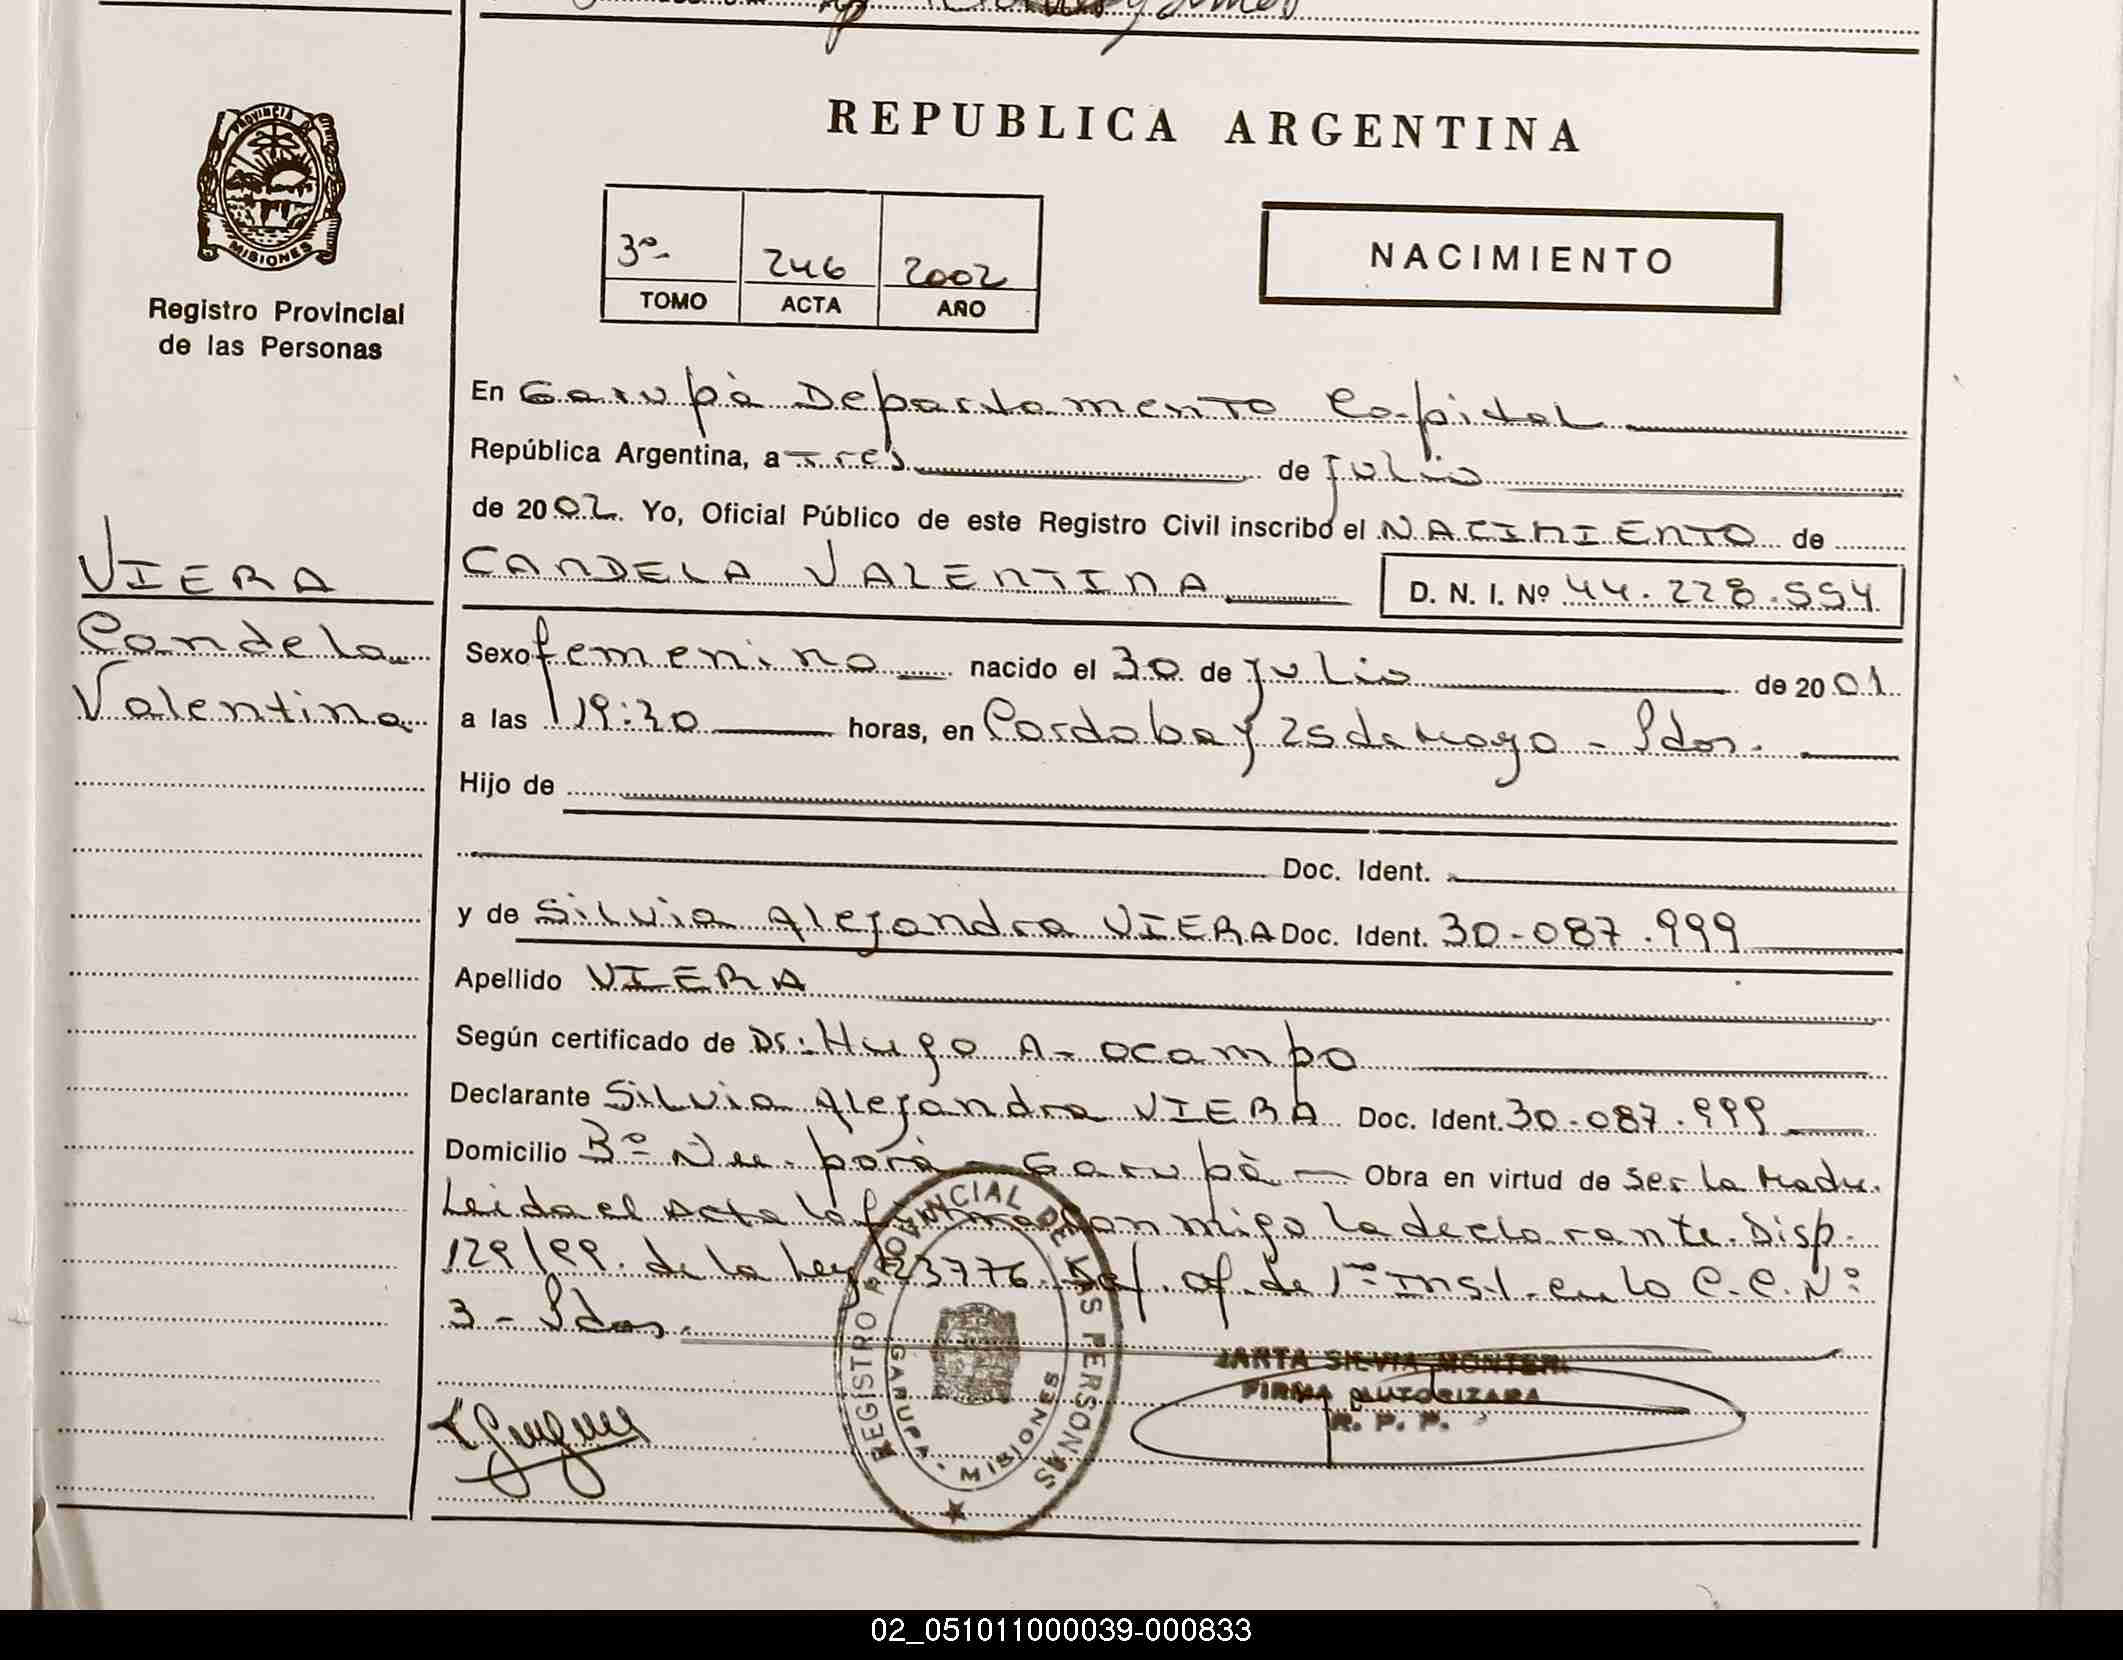 REPUBLICA ARGENTINA
PROVINCIA
MISIONES
Registro Provincial
de las Personas
3º- 246 2002
TOMO ACTA AÑO
NACIMIENTO
En Garupà Departamento Capital
República Argentina, a Tres de Julio
de 2002. Yo, Oficial Público de este Registro Civil inscribo el NACIMIENTO de
CANDELA VALENTINA D. N. I. Nº 44.228.554
VIERA
Candela
Valentina
Sexo femenino nacido el 30 de Julio de 2001
a las 19:30 horas, en Cordoba y 25 de Mayo - Pdas.
Hijo de
Doc. Ident.
y de Silvia Alejandra VIERA Doc. Ident. 30-087.999
Apellido VIERA
Según certificado de Dr: Hugo A- Ocampo
Declarante Silvia Alejandra VIERA Doc. Ident. 30-087.999
Domicilio Bº Ñu-porà - Garupà - Obra en virtud de Ser la Madre.
Leida el Acta la firma Conmigo la declarante. Disp.
129/99. de la Ley 23776 Of. de 1º Inst. en la C.C. Nº
3 - Pdas.
REGISTRO PROVINCIAL DE LAS PERSONAS
GARUPA - MISIONES
SILVIA
FIRMA AUTORIZADA
R. P. P.
02_051011000039-000833